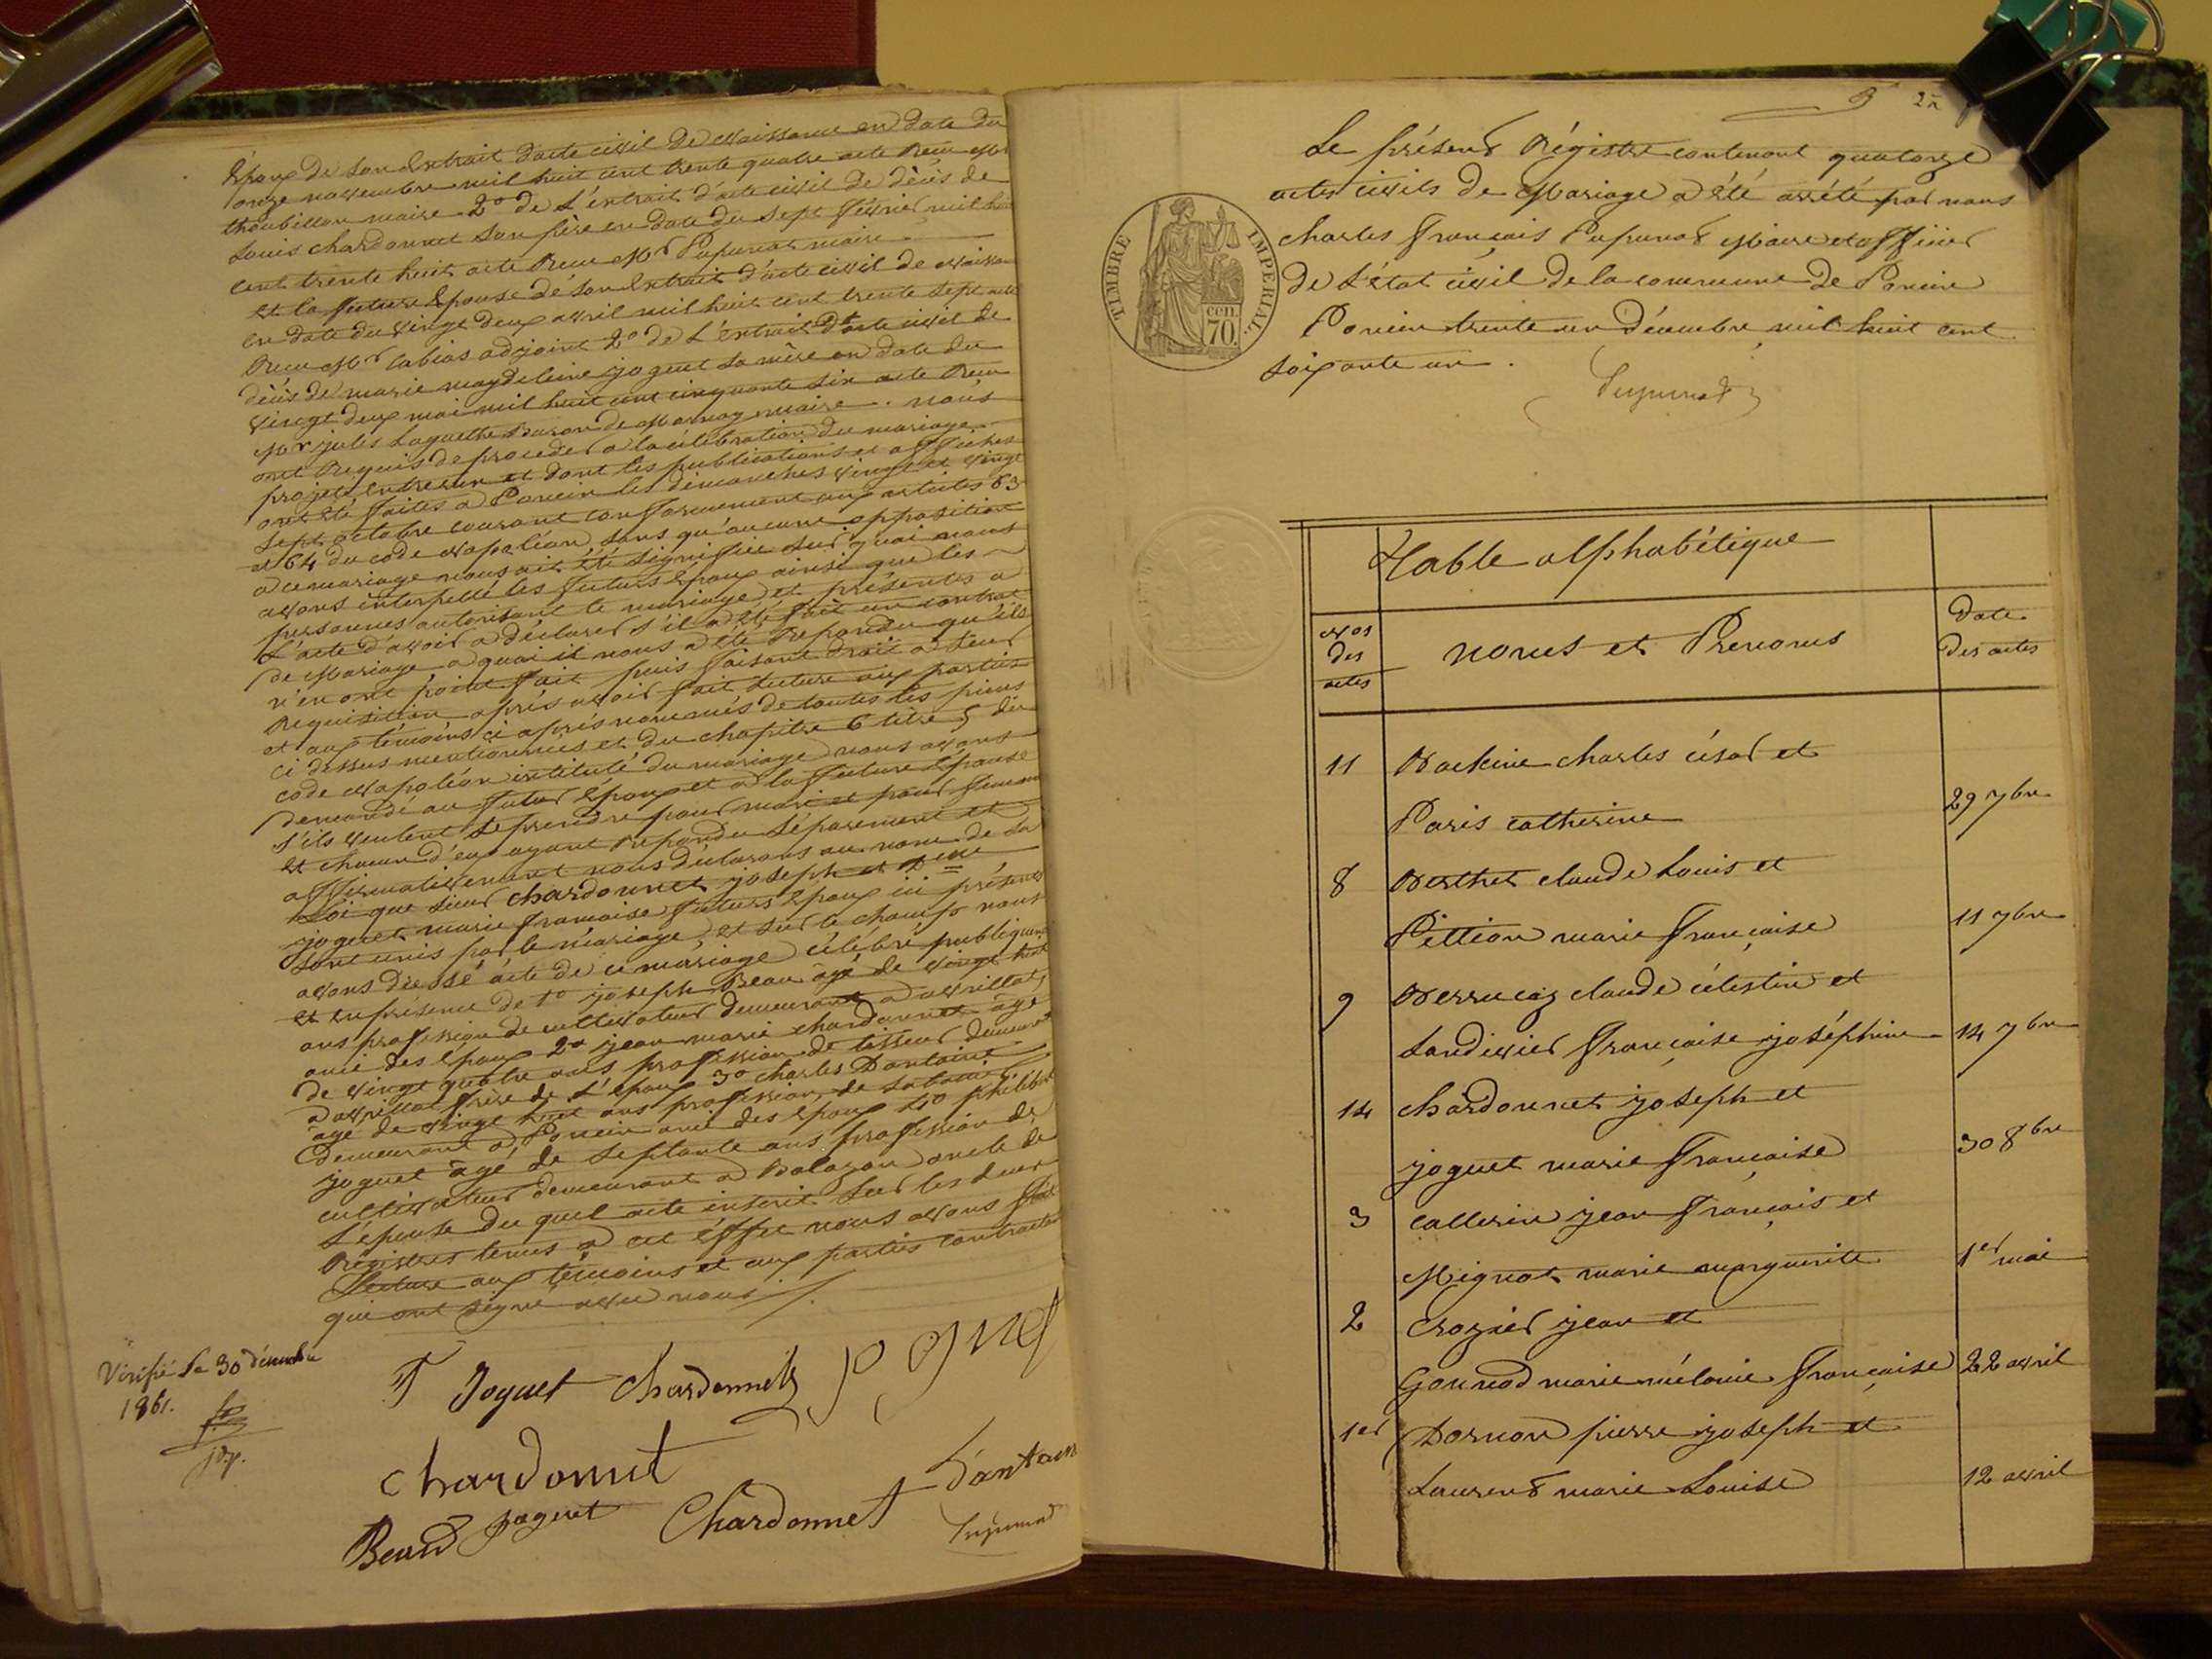 Epoux de son Extrait d'acte civil de Naissance en date du
onze novembre mil huit cent trente quatre acte Reçu Mr
thoubillon maire 2º de L'extrait d'acte civil de décès de
Louis chardonnet son père en date du sept février mil huit
cent trente huit acte Reçu Mr Papunat maire
et la future Epouse de son Extrait d'acte civil de Naissan
en date du vingt deux avril mil huit cent trente sept acte
Reçu Mr Cabias adjoint 2º de L'extrait d'acte civil de
décès de marie magdeleine joguet sa mère en date du
vingt deux mai mil huit cent cinquante six acte Reçu
Mr jules Laguette Baron de Mornay maire . nous
ont Requis de procéder a la célébration du mariage
projeté entre eux et dont les publications et affiches
ont été faites a Poncin les dimanches vingt et vingt
sept octobre courant conformément aux articles 63
et 64 du code Napoléon sans qu'aucune opposition
a ce mariage nous ait été signifiée sur quoi nous
avons interpellé les futurs Epoux ainsi que les
personnes autorisant le mariage et présentes a
L'acte d'avoir a déclarer s'il a été fait un contrat
de Mariage a quoi il nous a été Répondu qu'ils
n'en ont point fait puis faisant droit a leur
Requisition après avoir fait lecture aux parties
et aux témoins ci après nommés de toutes les pièces
ci dessus mentionnées et du chapitre 6 titre 5 du
code Napoléon intitulé du mariage nous avons
demandé au futur Epoux et a la future Epouse
s'ils veulent se prendre pour mari et pour femme
et chacun d'eux ayant Répondu séparément et
affirmativement nous déclarons au nom de la
Loi que sieur chardonnet joseph et
joguet marie françoise futurs Epoux ici présents
sont unis par le mariage et sur le champ nous
avons dressé acte de ce mariage célébré publiquem
et en présence de 1º joseph Beau âgé de vingt huit
ans profession de cultivateur demeurant a avrillat
ami des Epoux 2º jean marie chardonnet âgé
de vingt quatre ans profession de tisseur demeurant
a avrillat frère de L'Epoux 3º charles Dantain
âgé de vingt huit ans profession de
demeurant a Poncin ami des Epoux 4º philibert
joguet âgé de septante ans profession de
cultivateur demeurant a Bolozon oncle de
L'épouse du quel acte inscrit sur les deux
Régistres tenus a cet éffet nous avons fait
Lecture aux témoins et aux parties contractan
qui ont signé avec nous /.
F Joguet Chardonnet J O g u e t
Chardonnet
Dantain
Beau joguet Chardonnet
Papunat
Vérifié Le 30 décembre
1861.
Le présent Régistre contenant quatorze
actes civils de Mariage a été arrêté par nous
charles françois Papunat Maire et officier
de L'état civil de la commune de Poncin
Poncin trente un Décembre mil huit cent
soixante un .
Papunat
TIMBRE IMPERIAL.
cen.
70.
Table alphabétique
Nos
des
actes
noms et Prenoms
Date
Des actes
11 Backine charles césar et
Paris catherine 29 7bre
8 Berthet claude Louis et
Pittion marie françoise 11 7bre
9 Berrucaz claude célestin et
Landivier françoise joséphine 14 7bre
14 chardonnet joseph et
joguet marie françoise 30 8bre
3 Callerin jean françois et
Mignat marie marguerite 1er mai
2 Crozier jean et
Gounod marie mélanie françoise 22 avril
1er Dornon pierre joseph et
Laurend marie Louise 12 avril